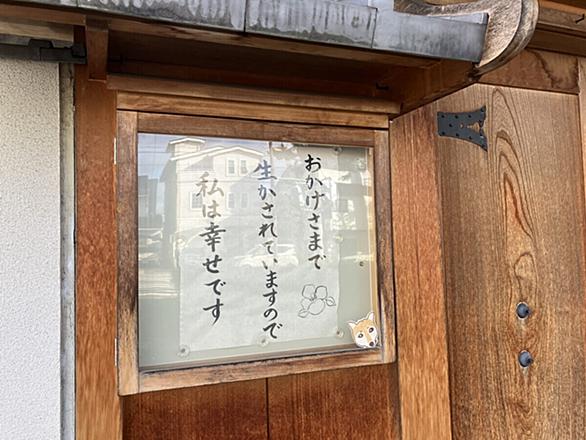 おかげさまで
生かされていますので
私は幸せです